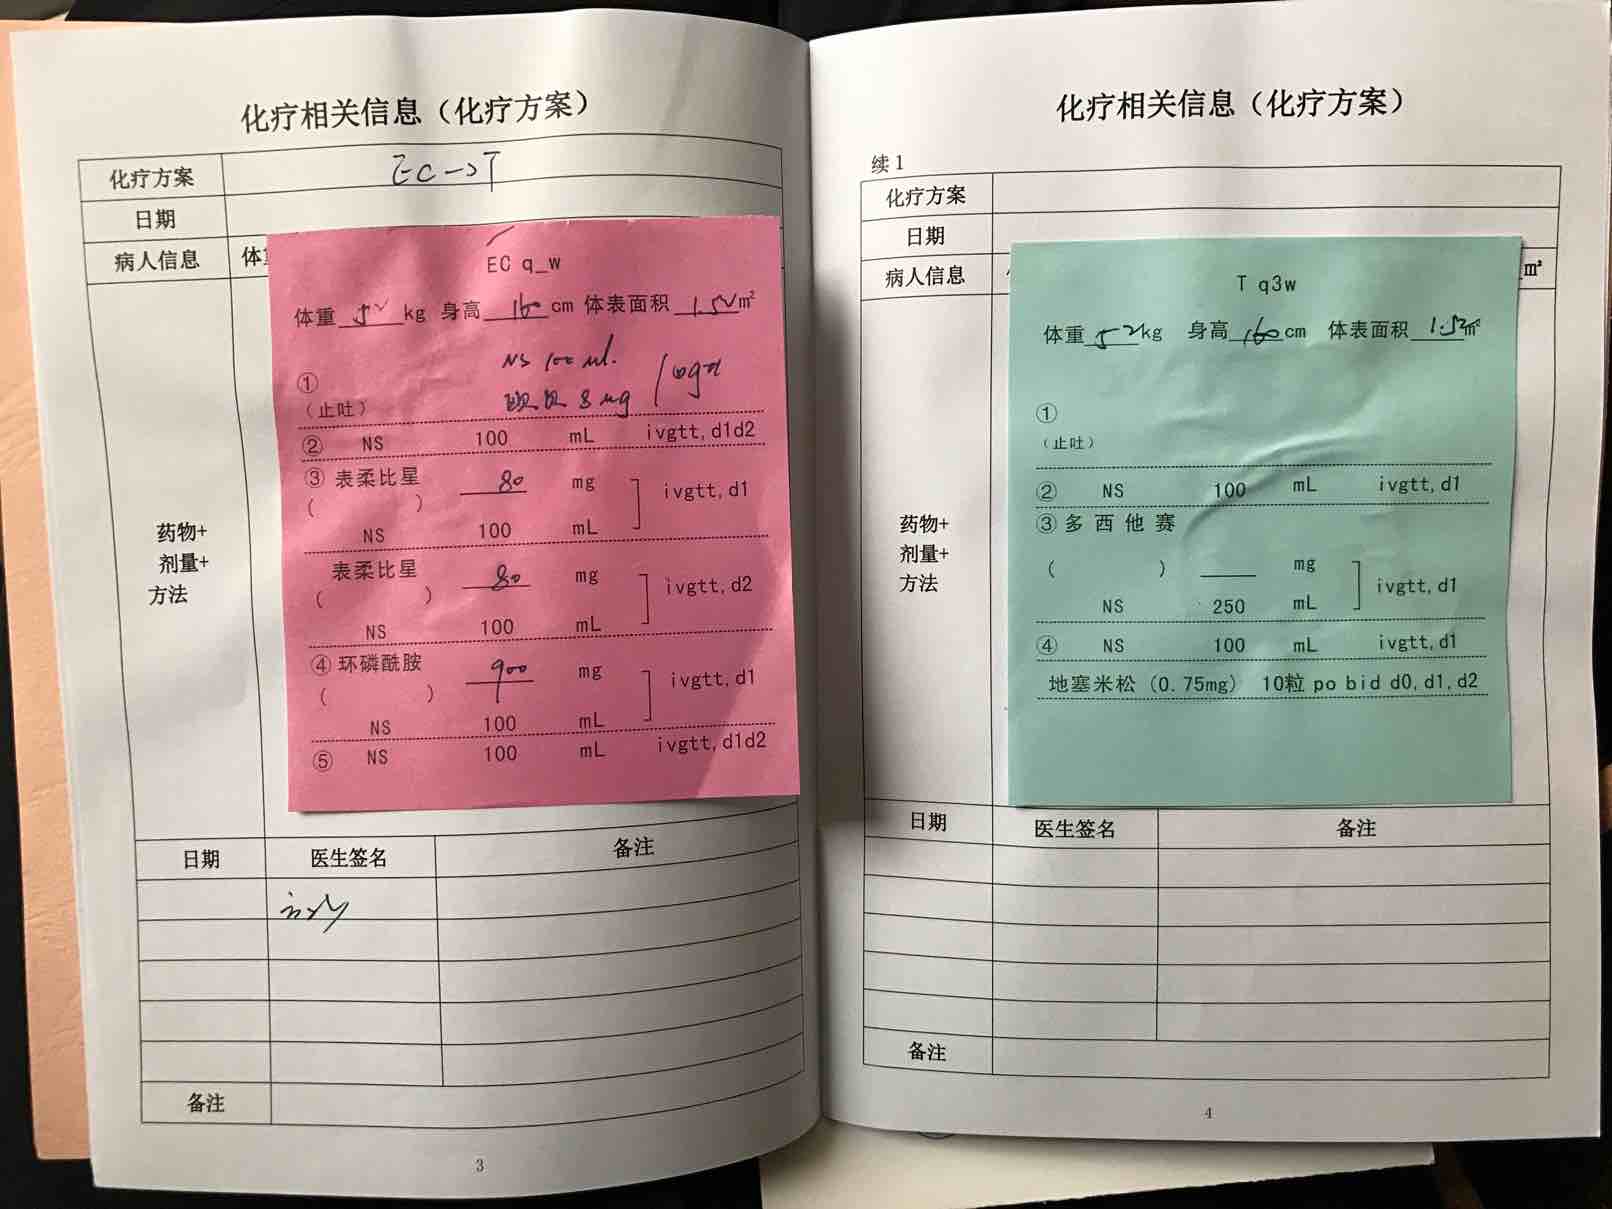 化疗相关信息（化疗方案）
化疗方案 EC→T
日期
病人信息 体
EC q_w
体重 52 kg 身高 160 cm 体表面积 1.52 m²
NS 100 ml.
①
（止吐） 8mg
② NS 100 mL ivgtt,d1d2
③ 表柔比星 80 mg
( ) ivgtt,d1
NS 100 mL
表柔比星 80 mg
( ) ivgtt,d2
NS 100 mL
④ 环磷酰胺 900 mg
( ) ivgtt,d1
NS 100 mL
⑤ NS 100 mL ivgtt,d1d2
药物+
剂量+
方法
日期 医生签名 备注
备注
3
化疗相关信息（化疗方案）
续1
化疗方案
日期
病人信息 m²
T q3w
体重 52 kg 身高 160 cm 体表面积 1.52 m²
①
（止吐）
② NS 100 mL ivgtt,d1
③ 多西他赛
( ) ___ mg
ivgtt,d1
NS 250 mL
④ NS 100 mL ivgtt,d1
地塞米松（0.75mg） 10粒 po bid d0,d1,d2
药物+
剂量+
方法
日期 医生签名 备注
备注
4